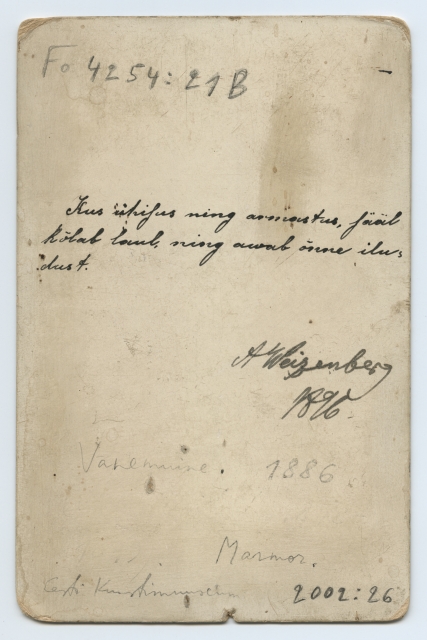 Fo 4254:21 B
Kus ühisus ning armastus, sääl
kõlab laul, ning awab õnne ilu-
dust.
A Weizenberg
1896.
Vanemuine. 1886
Marmor.
Eesti Kunstimuuseum
2002:26